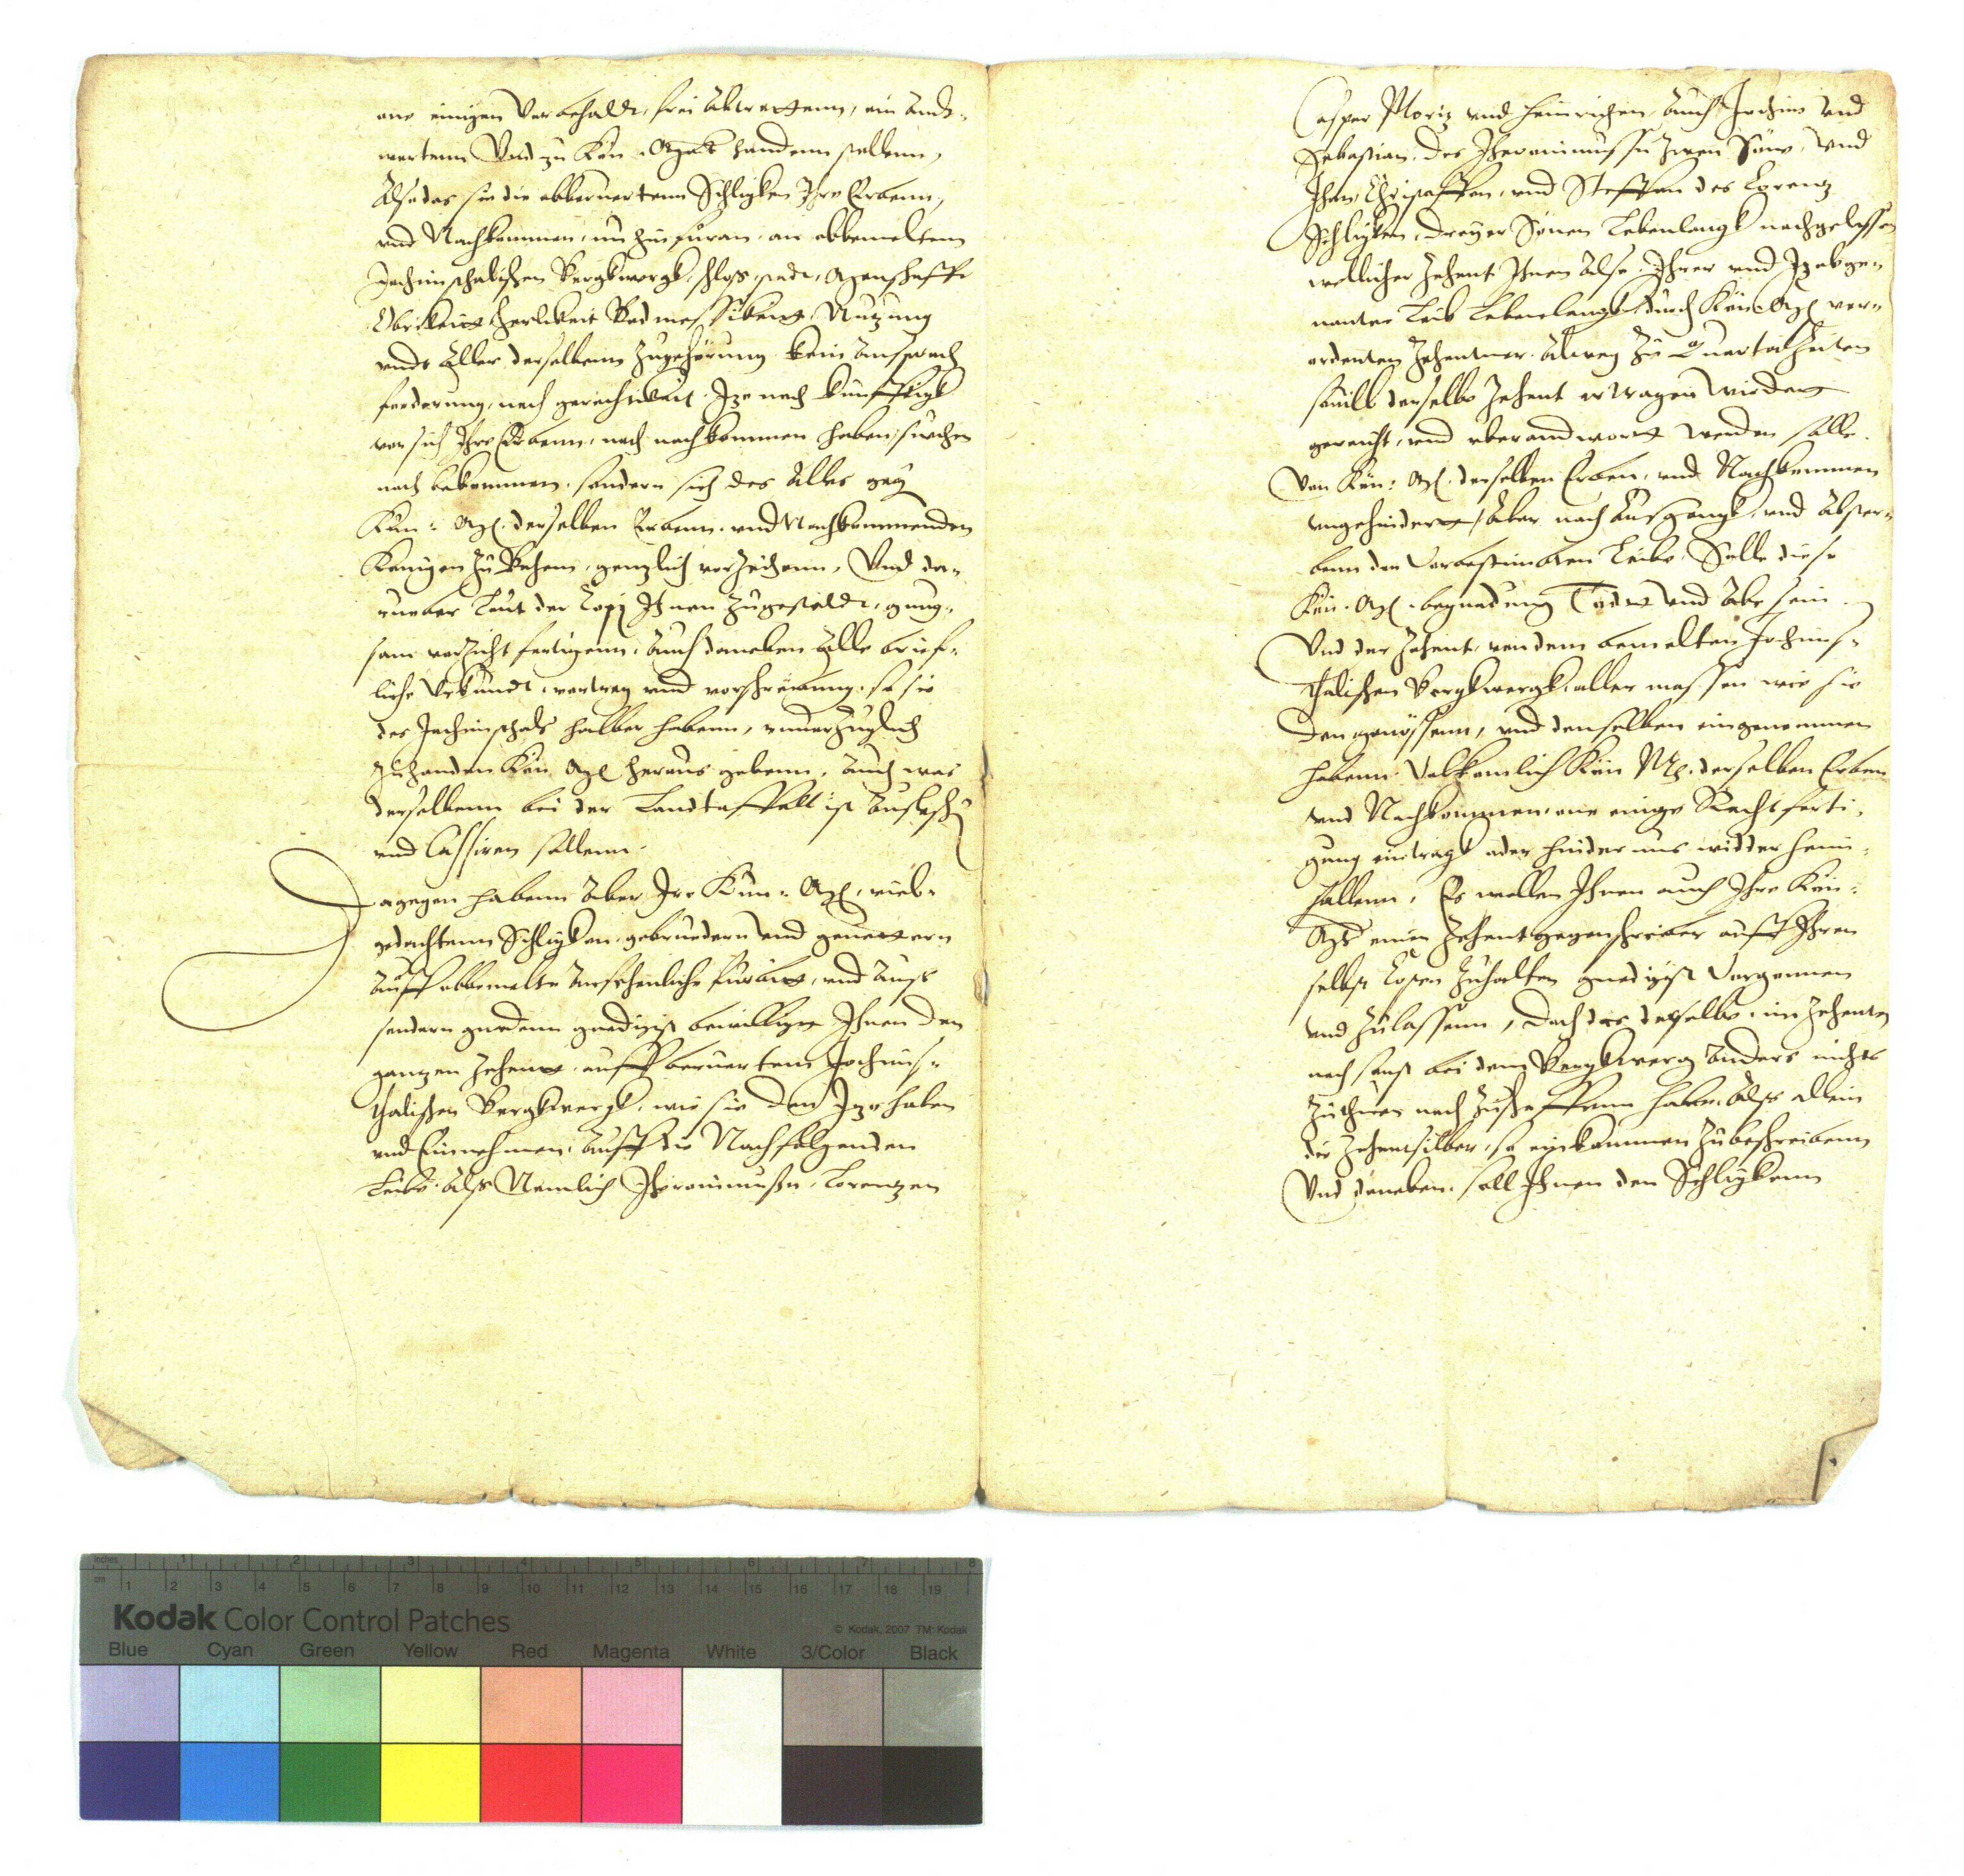 one einigen Vorbehaldt, frei Abtrettenn, ein Andt-
wortenn Vnd zu Kön: Mat handenn stellenn,
Also das sie die obberuertenn Schligken Ihre Erbenn,
vnd Nachkommen, nu hinfuran, an obbemeltem
Jochimsthalischen Bergkwergk, schlos, stadt, Manschafft
Obrikeit Herlikeit Nutzung
vnd Aller derselbenn Zugehörung kein Ansprach
forderung, noch gerechtikeit, Itzo noch künfftigk
vor sich Ihre Erbenn, noch nachkommen haben, suchen
noch bekommen, sondern sich des Alles geg
Kün: Mt. derselben Erbenn, vnd Nachkommenden
Konigen Zu Behem, gentzlich vorZeihenn, Vnd da-
rueber Laut der Copi Ihnen Zugestaldt, gnug-
sam vorZicht fertigenn, Auch daneben Alle brief-
liche Vrkundt, vertreg vnd vorschreibung, so sie
des Jochimsthals halber habenn, vnuorZuglich
Zuhanden Kön Mt heraus gebenn, Auch was
derselbenn bei der Landtaffell ist Auslesch
vnd Cassiren sollenn.
Dagegen habenn Aber Ire Kün: Mt. viel-
gedachtenn Schligken, gebruedern vnd geuettern
Auff obbemelte Ansehenliche fürbit, vnd Aus
sondern gnedenn gnedigist bewilligt Ihnen den
gantzen Zehent, auff beruertem Jochims-
thalischen Bergkwergk, wie sie den Itzo haben
vnd Einnehmen, Auff die Nachfolgenden
Leibe, Alss Nemlich Iheronimussn, Lorentzen
Casper Moritz vnd Heinrichen, Auch Jochim vnd
Sebastian, des Iheronimussn Zwen Söne, vnd
Ihan, Christoffen, vnd Steffan des Lorentz
Schligken, dreyer Sönen Lebenlangk nachgelassen
wellicher Zehent Ihnen Also, Ihrer vnd Itzobge-
nanter Leib Lebenlangk, durch Kün: Mt vor-
ordenten Zehentner, Alweg Zu Quartal Zeiten
souill derselbe Zehent ertragen wirdet
gereicht, vnd vberandwort werden solle.
Von Kün: Mt. derselben Erben, vnd Nachkommen
vngehindert, Aber nach Ausgangk, vnd Abster-
benn der Vorbestimbten Leibe, Solle diese
Kün. Mt. begnadung Todt vnd Abe sein.
Vnd der Zehent, von dem bemelten Jochims-
thalischen Bergkwergk, aller massen wie sie
den genossenn, vnd denselben eingenommen
habenn, Volkomlich Kün Mt. derselben Erben
vnd Nachkommen, one einige Rechtferti-
gung eintragk oder hindernus widder heim-
fallenn, Es wollen Ihnen auch Ihre Kün:
Mt einen Zehentgegenschreiber auff Ihren
selbst Costen Zuhalten gnedigist Vorgonnen
vnd Zulassenn, Doch das derselbe, im Zehenten
noch sonst bei dem Bergkwerg Anders nichts
Zuthuen noch Zuschaffenn habe, Alss Allein
die Zehentsilber, so einkommen Zubeschreibenn
Vnd daneben, soll Ihnen den Schligkenn
inches
cm
1 2 3 4 5 6 7 8 9 10 11 12 13 14 15 16 17 18 19
Kodak Color Control Patches
© Kodak, 2007 TM: Kodak
Blue Cyan Green Yellow Red Magenta White 3/Color Black